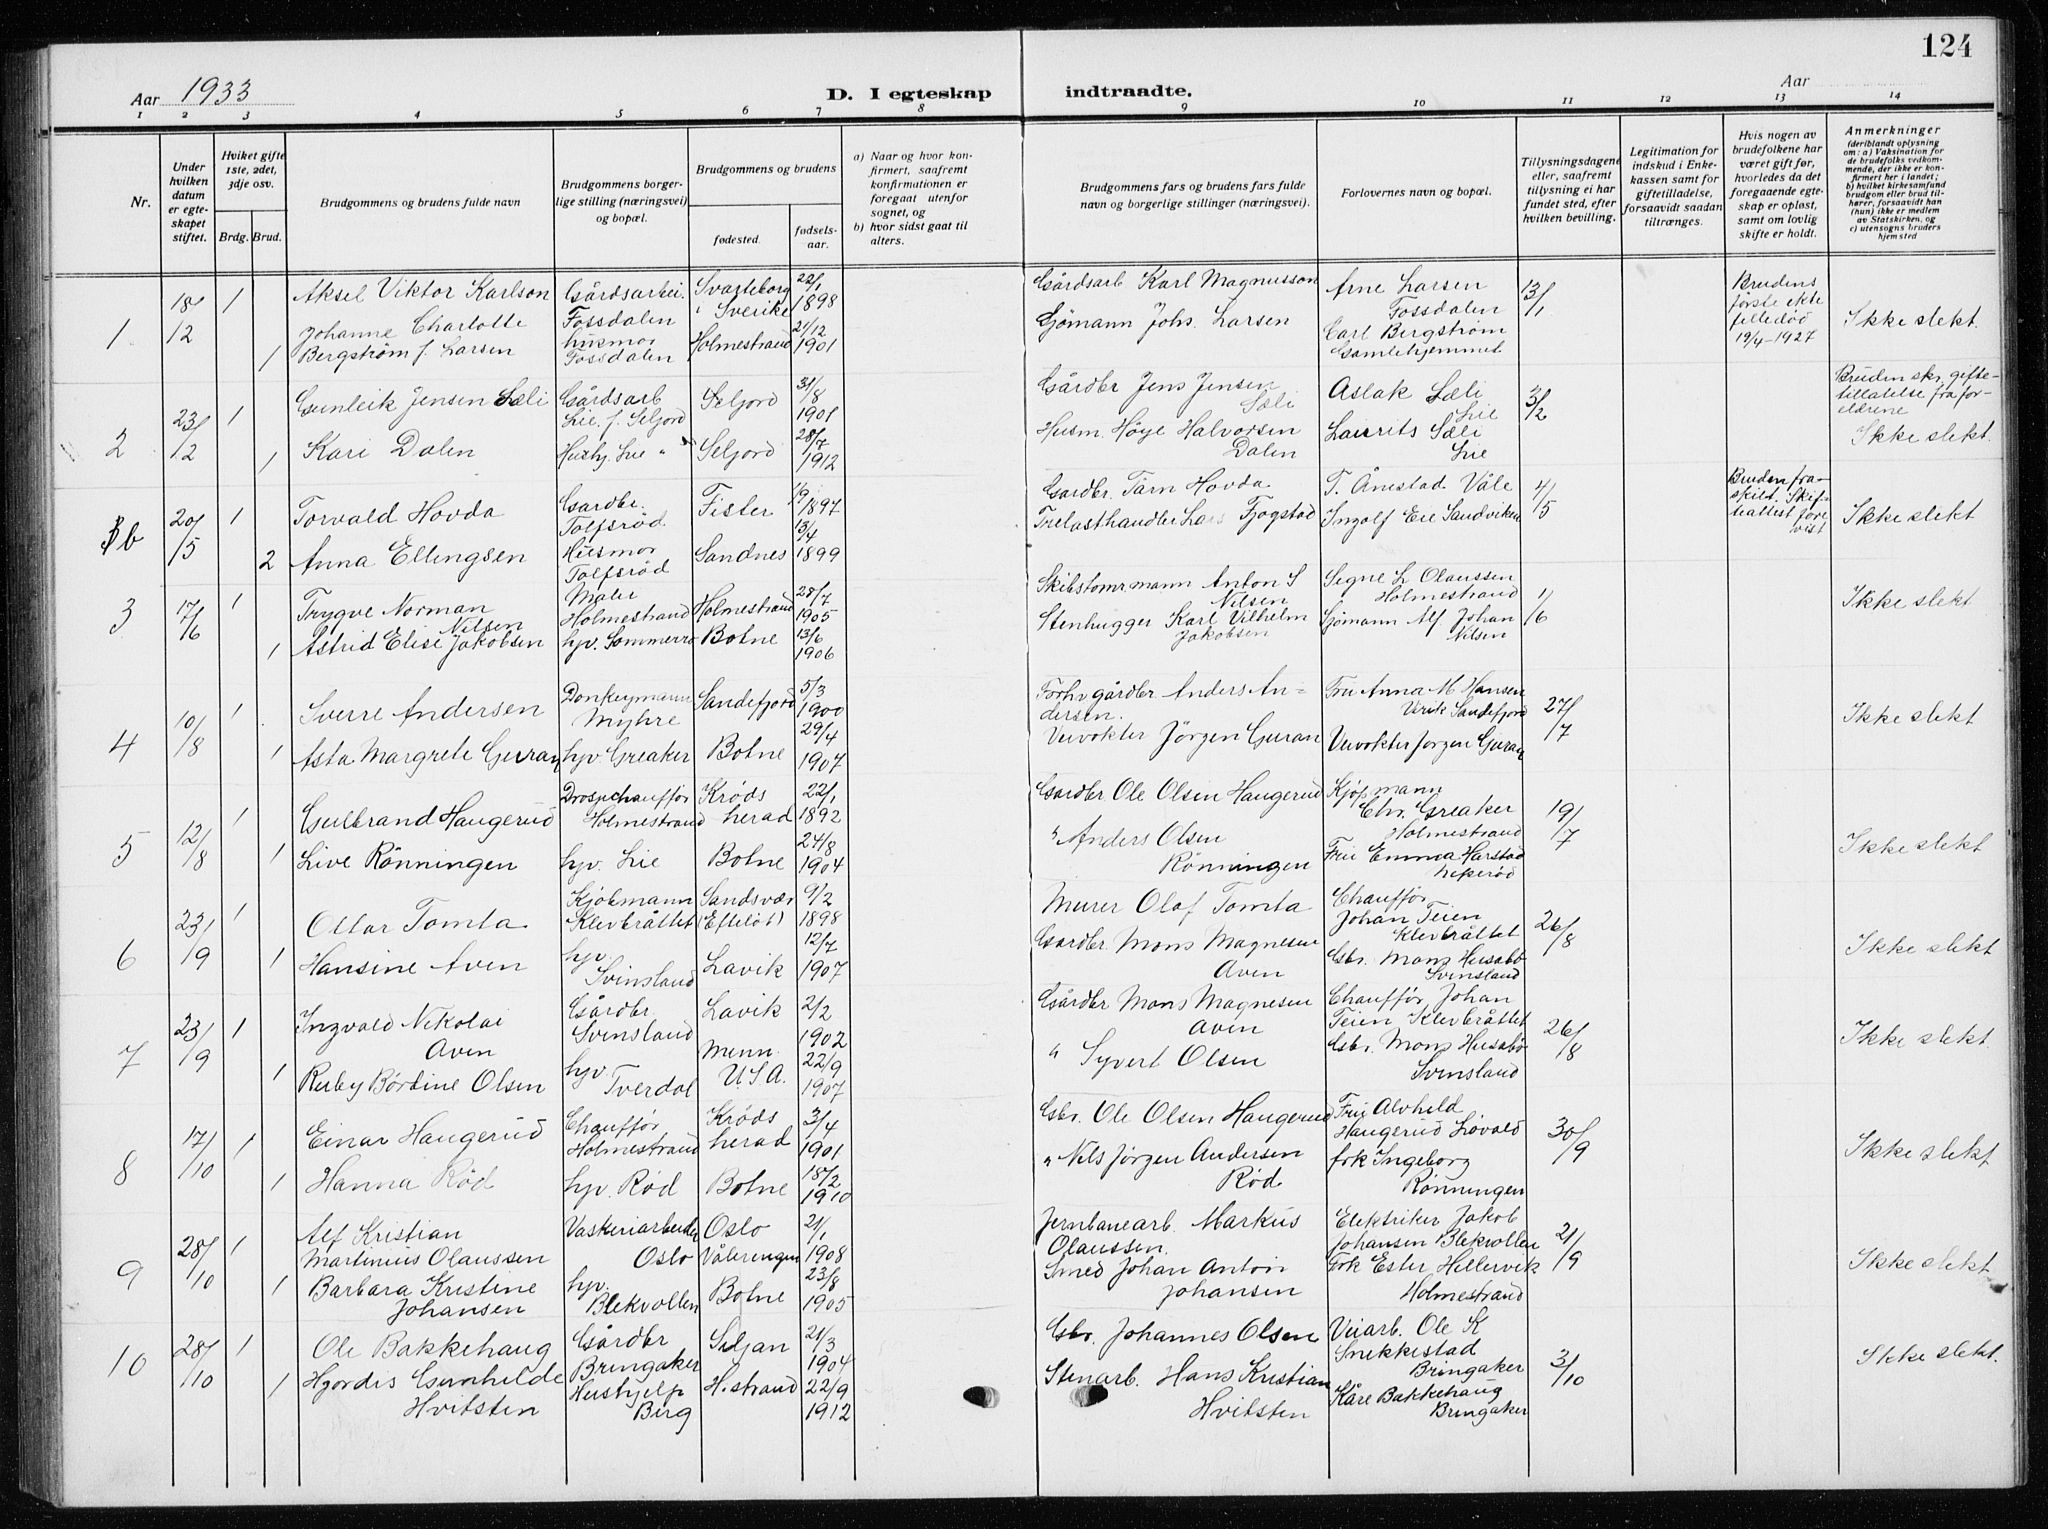 124
Aar 1933
D. I egteskap indtraadte.
Aar
1 2 3 4 5 6 7 8 9 10 11 12 13 14
Nr.
Under hvilken datum er egteskapet stiftet.
Hviket gifte 1ste, 2det, 3dje osv.
Brdg. Brud.
Brudgommens og brudens fulde navn
Brudgommens borgerlige stilling (næringsvei) og bopæl.
Brudgommens og brudens
fødested.
fødselsaar.
a) Naar og hvor konfirmert, saafremt konfirmationen er foregaat utenfor sognet, og
b) hvor sidst gaat til alters.
Brudgommens fars og brudens fars fulde navn og borgerlige stillinger (næringsvei).
Forlovernes navn og bopæl.
Tillysningsdagene eller, saafremt tillysning ei har fundet sted, efter hvilken bevilling.
Legitimation for indskud i Enkekassen samt for giftetilladelse, forsaavidt saadan tiltrænges.
Hvis nogen av brudefolkene har været gift før, hvorledes da det foregaaende egteskap er opløst, samt om lovlig skifte er holdt.
Anmerkninger
(deriblandt oplysning om: a) Vaksination for de brudefolks vedkommende, der ikke er konfirmert her i landet;
b) hvilket kirkesamfund brudgom eller brud tilhører, forsaavidt han (hun) ikke er medlem av Statskirken, og
c) utensogns bruders hjemsted
1 18/12 1 Aksel Viktor Karlson Gårdsarbei. Fossdalen Svarteborg Sverike 22/1 1898
1 Johanne Charlotte Bergstrøm f. Larsen husmor Fossdalen Holmestrand 21/12 1901
Gårdsarb Karl Magnusson
Sjömann Johs. Larsen
Arne Larsen Fossdalen
Carl Bergstrøm Gamlehjemmet
13/1
Brudens første ekte felle død 19/4-1927
Ikke slekt.
2 23/12 1 Gunleik Jensen Sæli Gårdsarb Lie. f. Seljord Seljord 31/8 1901
1 Kari Dalen Hushj. Lie " Seljord 28/7 1912
Gårdbr Jens Jensen Sæli
Husm. Høye Halvorsen Dalen
Aslak Sæli Lie
Laurits Sæli Lie
3/2
Bruden skr. giftetillatelse fra foreldrene
Ikke slekt.
1b 20/5 1 Torvald Hovda Gardbr. Tolfsrød Fister 1/9 1897
2 Anna Ellingsen Husmor Tolfsrød Sandnes 13/4 1899
Gardbr. Tarn Hovda
Trelasthandler Lars Fjogstad
T. Ånestad Våle
Ingolf Eie Sandviken
4/5
Bruden fraskilt. Skifteattest forevist
Ikke slekt
3 17/6 1 Trygve Norman Nilsen Maler Holmestrand Holmestrand 28/7 1905
1 Astrid Elise Jakobsen hjv. Sommerro Botne 13/6 1906
Skibstømrmann Anton S Nilsen
Stenhugger Karl Vilhelm Jakobsen
Signe L Olaussen Holmestrand
Sjömann Alf Johan Nilsen
1/6
Ikke slekt
4 10/8 1 Sverre Andersen Donkeymann Myhre Sandefjord 5/3 1900
1 Asta Margrete Guran hjv. Greaker Botne 29/4 1907
Forhv gårdbr. Anders Andersen.
Veivokter Jörgen Guran
Fru Anna M Hansen Virik Sandefjord
Veivokter Jorgen Guran
27/7
Ikke slekt
5 12/8 1 Gulbrand Haugerud Drosjechauffør Holmestrand Krødsherad 22/1 1892
1 Live Rønningen hjv. Lie Botne 24/8 1904
Gardbr Ole Olsen Haugerud
" Anders Olsen Rønningen
Kjøpmann Chr. Greaker Holmestrand
Fru Emma Harstad
19/7
Ikke slekt
6 23/9 1 Ottar Tomta Kjøbmann Klevbråttet Sandsvær (Efteløt) 9/2 1898
1 Hansine Aven hjv. Svinsland Lavik 12/7 1907
Murer Olaf Tomta
Gardbr. Mons Magnesen Aven
Chauffør Johan Teien Klevbråttet
Gbr. Mons Husabø Svinsland
26/8
Ikke slekt
7 23/9 1 Ingvald Nikolai Aven Gårdbr Svinsland Lavik 2/2 1902
1 Ruby Børdine Olsen hjv. Tverdal Menn. U.S.A. 22/9 1907
Gårdbr Mons Magnesen Aven
" Syvert Olsen
Chauffør Johan Teien Klevbråttet
Gbr. Mons Husabø Svinsland
26/8
Ikke slekt.
8 17/10 1 Einar Haugerud Chauffør Holmestrand Krødsherad 3/4 1901
1 Hanna Rød hjv. Rød Botne 18/2 1910
Gbr. Ole Olsen Haugerud
" Nils Jørgen Andersen Rød
Fru Alvhild Haugerud Løvald
frk Ingeborg Rønningen
30/9
Ikke slekt
9 28/10 1 Alf Kristian Martinius Olaussen Vaskeriarbeider Oslo Oslo Vålerengen 2/1 1908
1 Barbara Kristine Johansen hjv. Blekvollen Botne 23/8 1905
Jernbanearb. Markus Olaussen.
Smed Johan Anton Johansen
Elektriker Jakob Johansen Blekvollen
Frk Ester Hillervik Holmestrand
21/9
Ikke slekt.
10 28/10 1 Ole Bakkehaug Gårdbr Bringaker Siljan 21/3 1904
1 Hjørdis Gunhilde Hvitsten Hushjelp Berg H.strand 22/9 1912
Gbr. Johannes Olsen
Stenarb. Hans Kristian Hvitsten
Veiarb. Ole K Snekkestad Bringaker
Kåre Bakkehaug Bringaker
3/10
Ikke slekt.